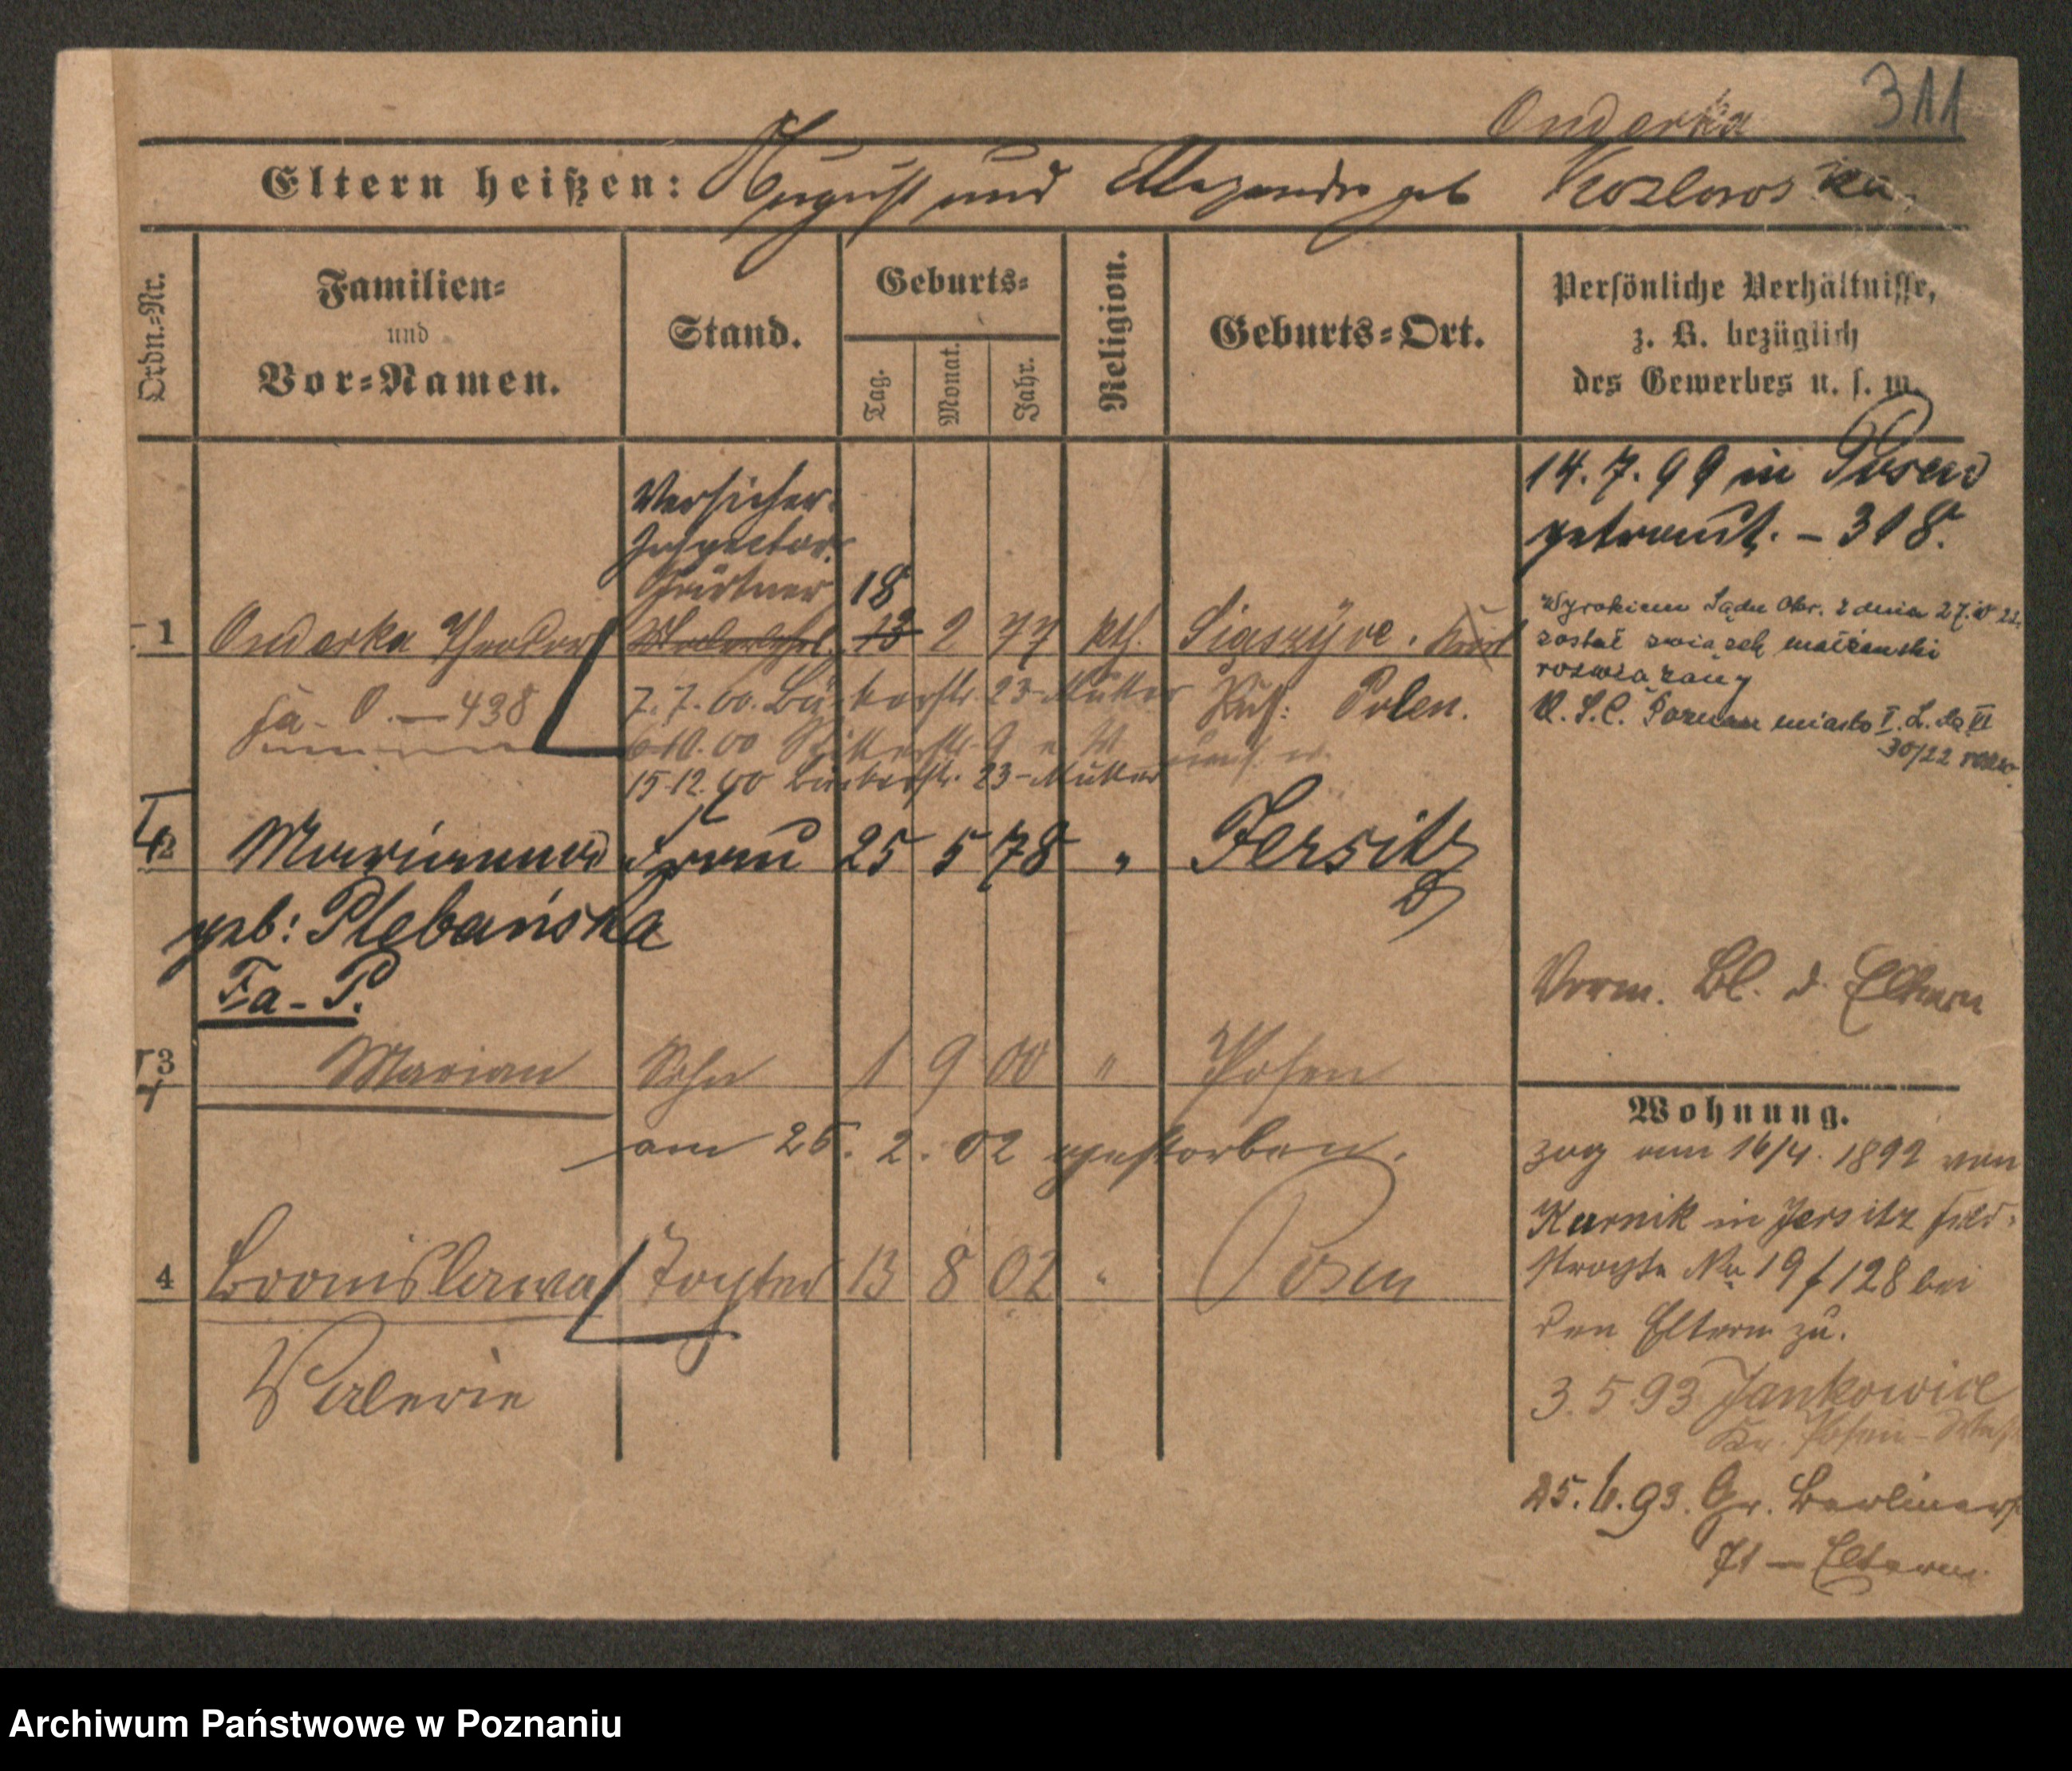 Onderka 311
Eltern heißen: August und geb Kozlowska.
Ordn.-Nr.
Familien-
und
Vor-Namen.
Stand.
Geburts-
Tag.
Monat.
Jahr.
Religion.
Geburts-Ort.
Persönliche Verhältnisse,
z. B. bezüglich
des Gewerbes u. s. w.
14. 7. 99 in Posen
getraut. – 318.
Versicher.
Inspector.
Gärtner 18
1 Onderka Theodor 13 2 77 kth.
Fa. O. — 438
7. 7. 00. 23 - Mutter
Ruß: Polen.
6 10. 00
15. 12. 00 23 - Mutter
Wyrokiem Sądu Okr. z dnia 27.
został związek małżeński
rozwiązany
U. S. C. Poznań miasto
30/22
2 Marianna Frau 25 5 78 " Jersitz
geb: Plebańska
Fa - P.
Vorm. Bl. d. Eltern
3 Marian Sohn 1 9 00 " Posen
am 26. 2. 02 gestorben.
4 Bronislawa Tochter 13 8 02 " Posen
Valerie
Wohnung.
zog am 16/4. 1892 von
Kurnik in Jersitz Feld-
straße No 19 / 128 bei
den Eltern zu.
3. 5. 93 Jankowice
Kr. Posen - West
25. 6. 93. Gr. Berlinerst
71 — Eltern
Archiwum Państwowe w Poznaniu